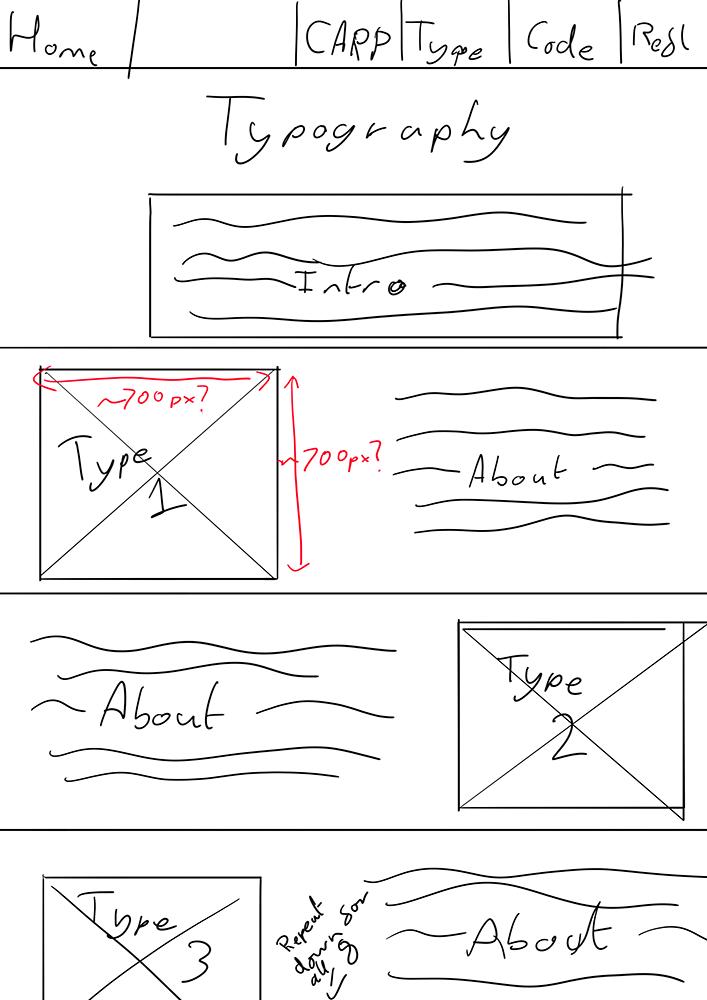 Home CAPP Type Code Refl
Typography
Intro
~700px?
Type
1
~700px?
About
About
Type
2
Type
3
Repeat
down for
all 8
About